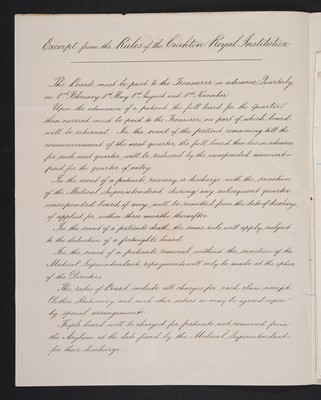 Excerpt from the Rules of the Crichton Royal Institution
The Board must be paid to the Treasurer in advance, Quarterly,
on 1st February, 1st May, 1st August and 1st November.
Upon the admission of a patient the full board for the Quarter
then current must be paid to the Treasurer, no part of which board
will be returned. In the event of the patient remaining till the
commencement of the next quarter, the full board then due in advance
for such next quarter, will be reduced by the unexpended amount
paid for the quarter of entry.
In the event of a patient's removal or discharge with the sanction
of the Medical Superintendent during any subsequent quarter
unexpended board, if any, will be remitted from the date of discharge,
if applied for within three months thereafter.
In the event of a patient's death, the same rule will apply, subject
to the deduction of a fortnight's board.
In the event of a patient's removal without the sanction of the
Medical Superintendent, repayment will only be made at the option
of the Directors.
The rates of Board include all charges for each class, except
Clothes, Stationery and such other extras as may be agreed upon
by special arrangement.
Triple board will be charged for patients not removed from
the Asylum at the date fixed by the Medical Superintendent
for their discharge.